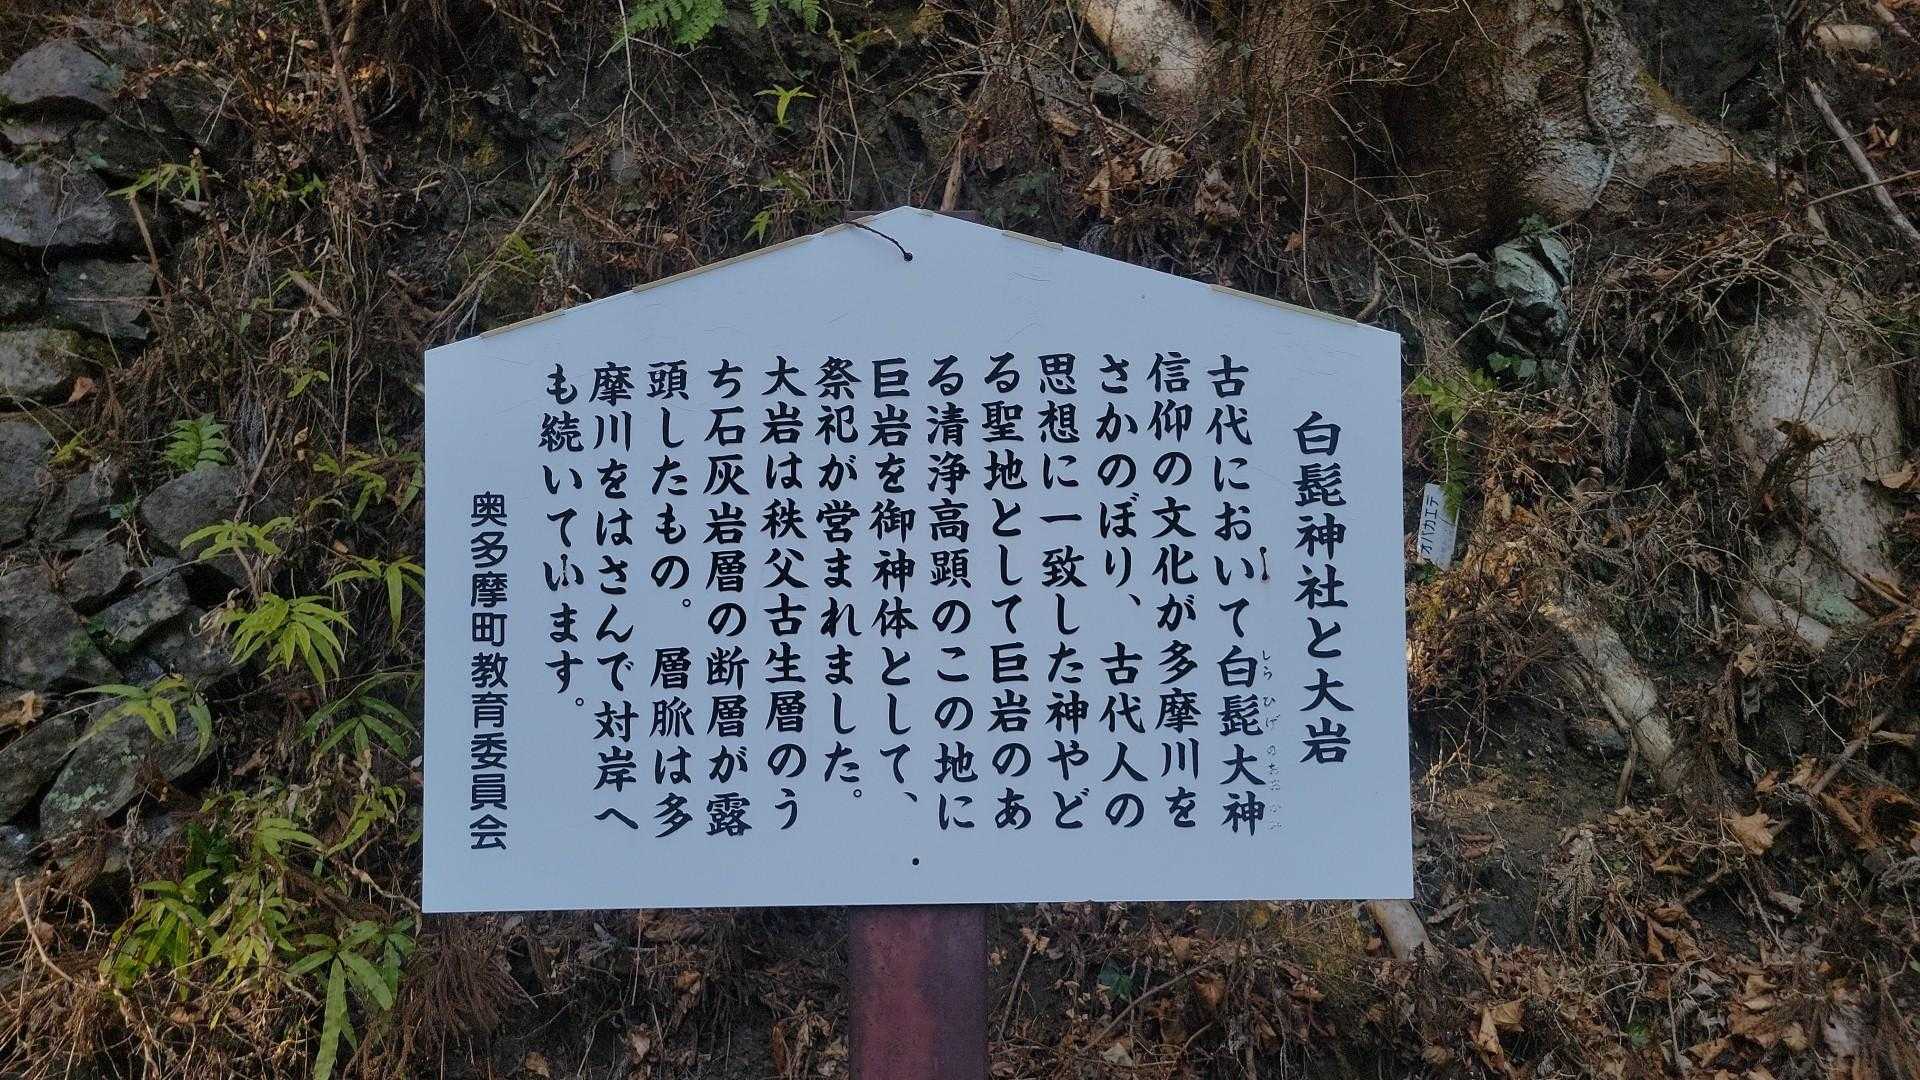 白髭神社と大岩
古代において白髭大神
しらひげのおおかみ
信仰の文化が多摩川を
さかのぼり、古代人の
思想に一致した神やど
る聖地として巨岩のあ
る清浄高顕のこの地に
巨岩を御神体として、
祭祀が営まれました。
大岩は秩父古生層のう
ち石灰岩層の断層が露
頭したもの。層脈は多
摩川をはさんで対岸へ
も続いています。
奥多摩町教育委員会
オバカエデ